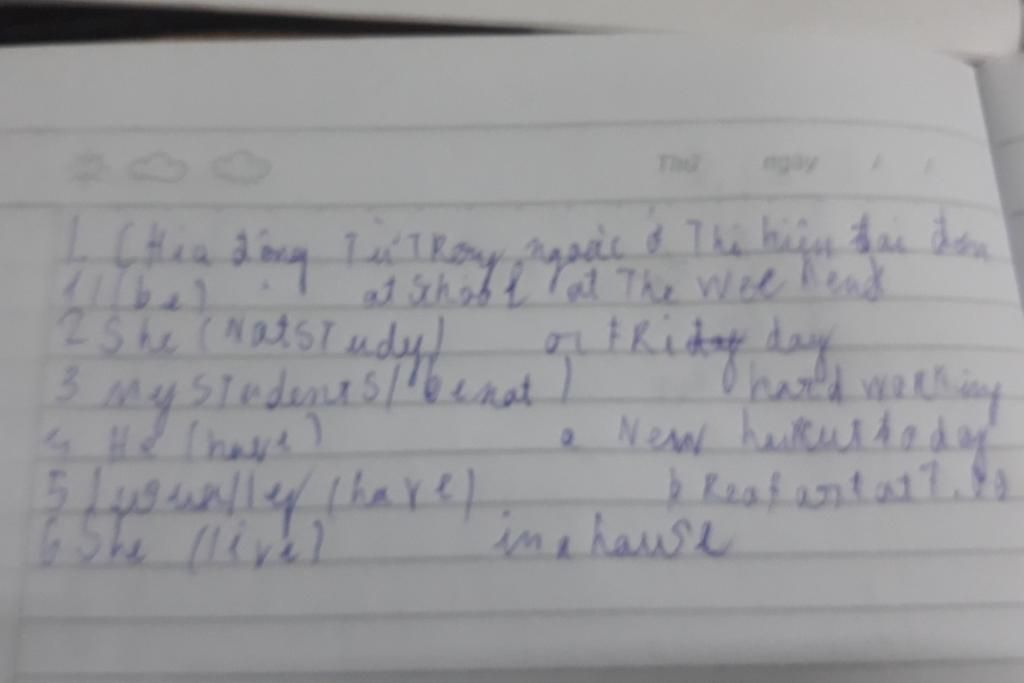 Thứ ngày / /
1 (Hia động Từ TRong ngoặc ở Thì hiện tại đơn
1 I (be) at School at The Wee kend
2 She (Not STudy) on FRiday day
3 My STudents (be not) hard working
4 He (have) a New haircut today
5 I usually (have) bReafast at 7.
6 She (live) in a hause